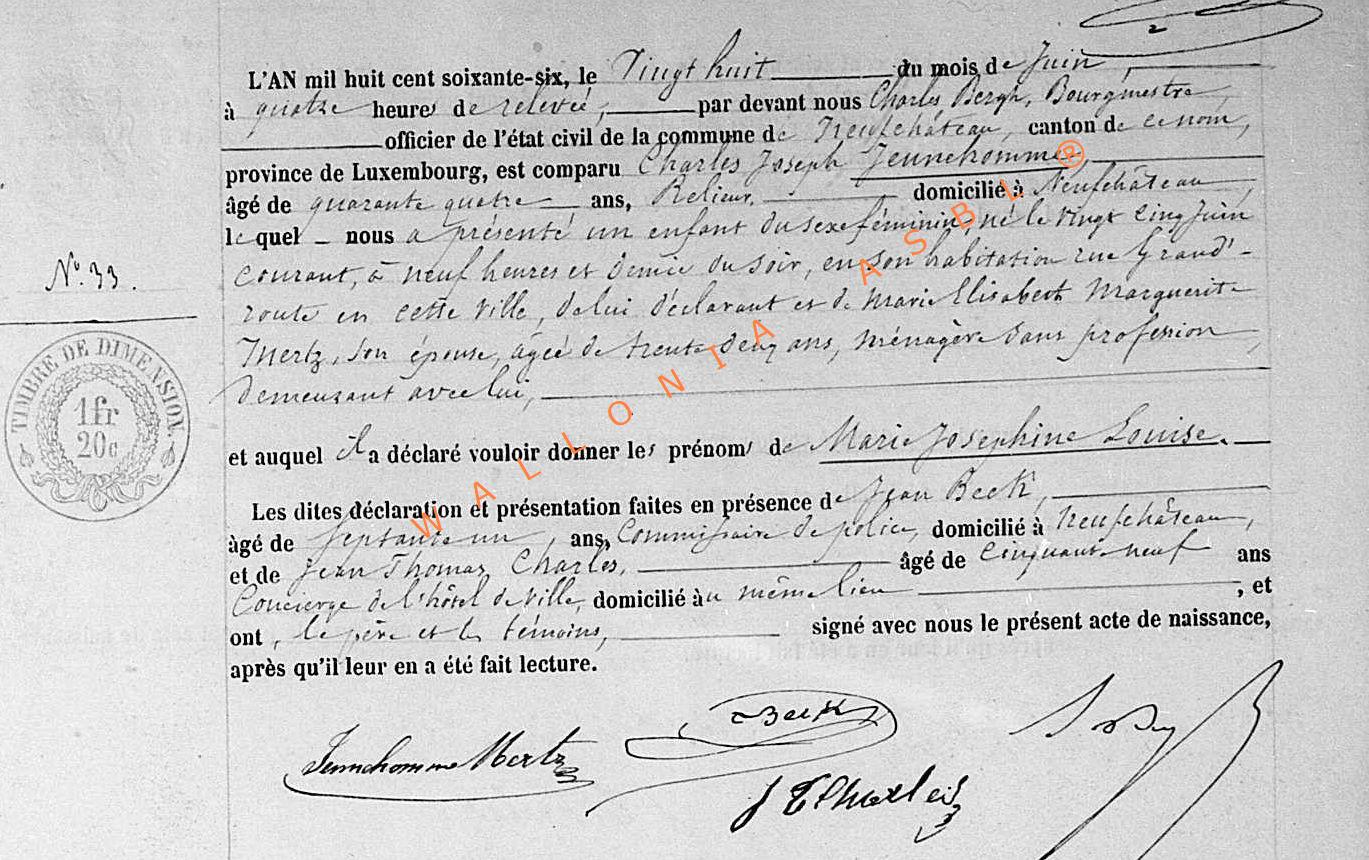 2
L'AN mil huit cent soixante-six, le Vingt huit du mois de Juin,
à quatre heures de relevée, par devant nous Charles Bergh, Bourgmestre,
officier de l'état civil de la commune de Neufchâteau, canton de ce nom,
province de Luxembourg, est comparu Charles Joseph Jeunehomme,
âgé de quarante quatre ans, Relieur, domicilié à Neufchâteau,
lequel nous a présenté un enfant du sexe féminin, né le vingt cinq Juin
courant, à neuf heures et demie du soir, en son habitation rue Grand'-
route en cette ville, de lui déclarant et de Marie Elisabeth Marguerite
Mertz, son épouse, âgée de trente deux ans, ménagère sans profession,
demeurant avec lui,
et auquel il a déclaré vouloir donner les prénoms de Marie Josephine Louise.
Les dites déclaration et présentation faites en présence de Jean Beck,
âgé de septante un, ans, Commissaire de police, domicilié à Neufchâteau,
et de Jean Thomas Charles, âgé de cinquante neuf ans
Concierge de l'hôtel de ville, domicilié au même lieu, et
ont, le père et les témoins, signé avec nous le présent acte de naissance,
après qu'il leur en a été fait lecture.
N° 33.
TIMBRE DE DIMENSION.
1fr
20c
WALLONIA ASBL ®
Jeunehomme Mertz
Beck
J T Charles